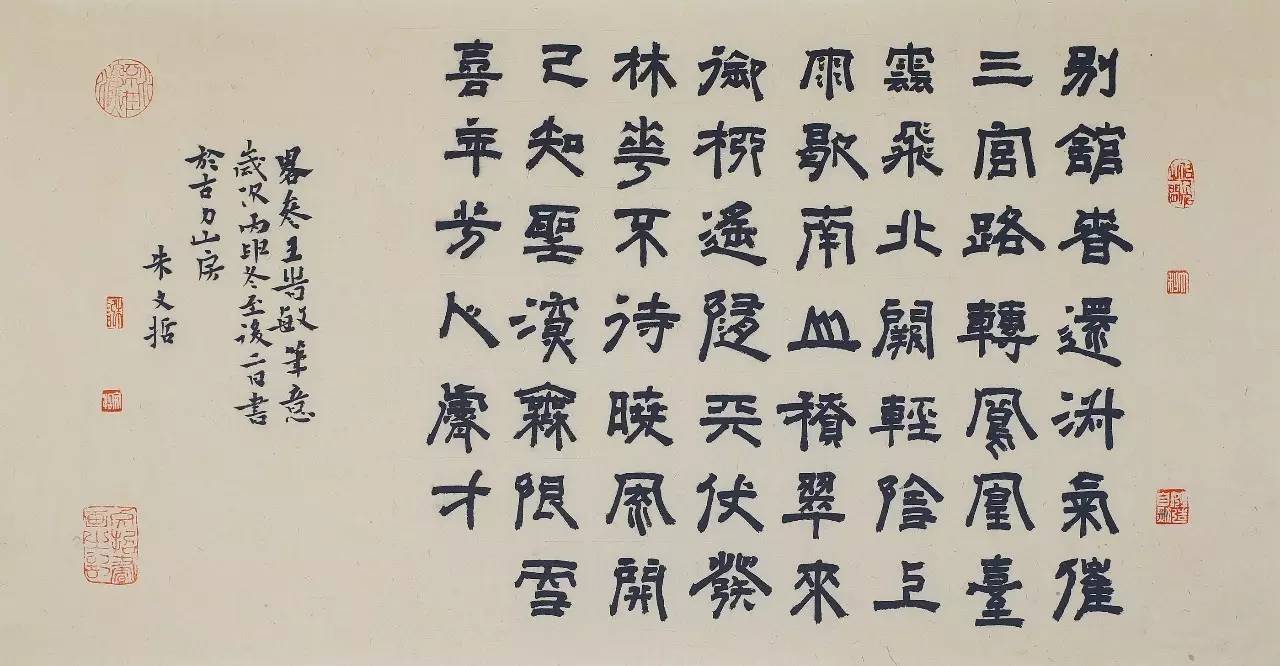 別館春還淑氣催
三宮路轉鳳凰臺
雲飛北闕輕陰上
雨歇南山積翠來
御柳遙隨天仗發
林華不待曉風開
已知聖無限雪
喜年芳入睿才
畧參王旹敏筆意
歲次丙申冬至後二日書
於古刀山房
朱文哲